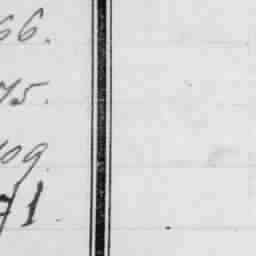 66.
75.
109
71